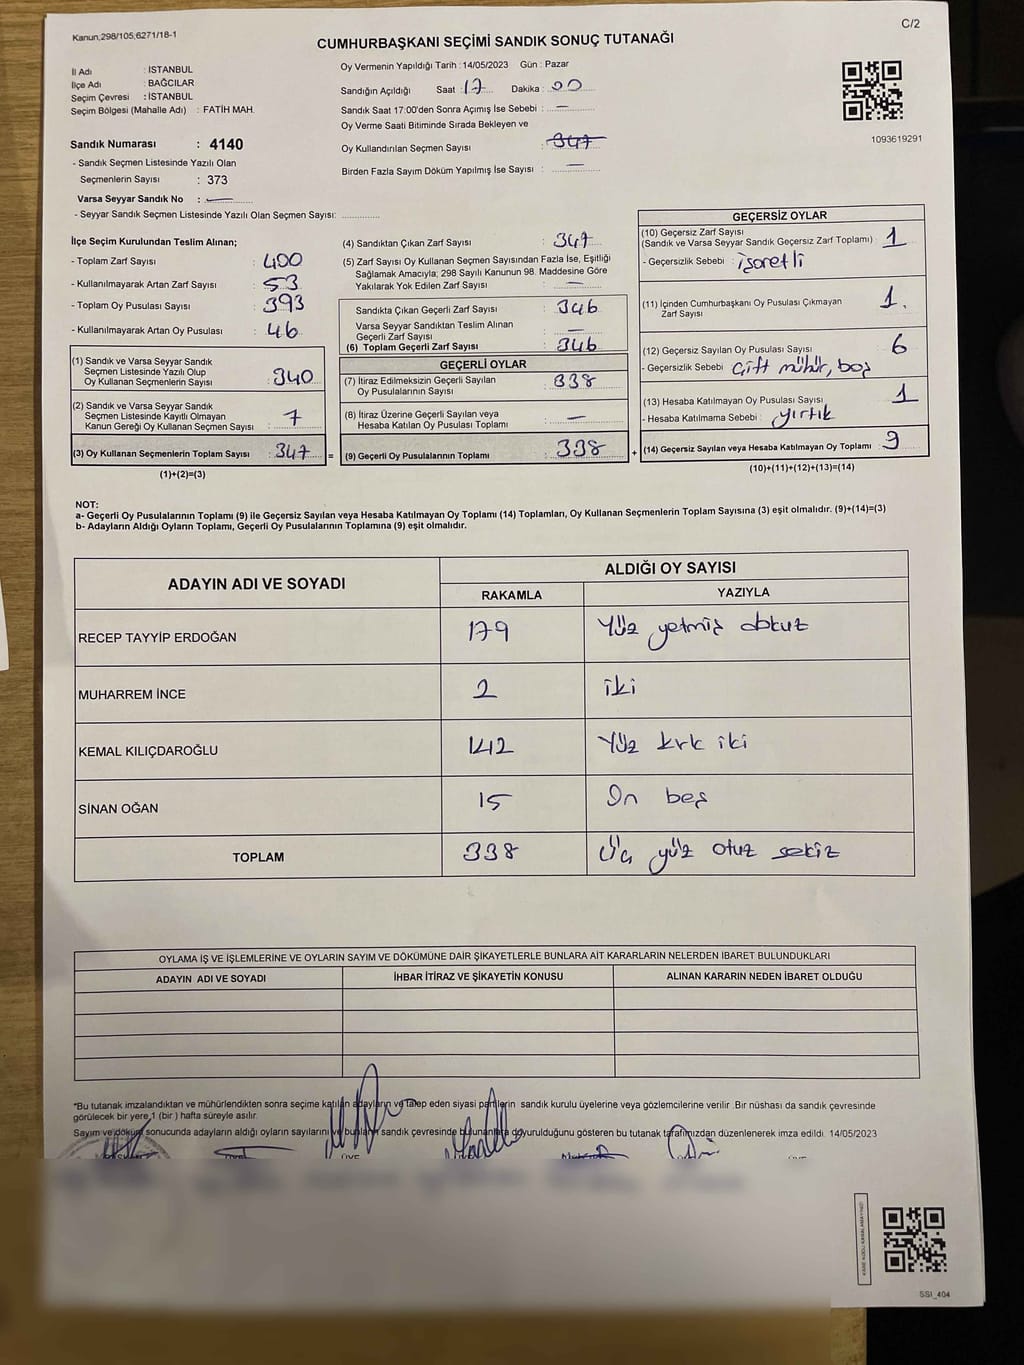 Kanun,298/105,6271/18-1
C/2
CUMHURBAŞKANI SEÇİMİ SANDIK SONUÇ TUTANAĞI
İl Adı : İSTANBUL
İlçe Adı : BAĞCILAR
Seçim Çevresi : İSTANBUL
Seçim Bölgesi (Mahalle Adı) : FATİH MAH.
Sandık Numarası : 4140
- Sandık Seçmen Listesinde Yazılı Olan
Seçmenlerin Sayısı : 373
Varsa Seyyar Sandık No : —
- Seyyar Sandık Seçmen Listesinde Yazılı Olan Seçmen Sayısı:
Oy Vermenin Yapıldığı Tarih : 14/05/2023 Gün : Pazar
Sandığın Açıldığı Saat : 17 Dakika : 00
Sandık Saat 17:00'den Sonra Açımış İse Sebebi : —
Oy Verme Saati Bitiminde Sırada Bekleyen ve
Oy Kullandırılan Seçmen Sayısı : 347
Birden Fazla Sayım Döküm Yapılmış İse Sayısı : —
1093619291
İlçe Seçim Kurulundan Teslim Alınan;
- Toplam Zarf Sayısı : 400
- Kullanılmayarak Artan Zarf Sayısı : 53
- Toplam Oy Pusulası Sayısı : 393
- Kullanılmayarak Artan Oy Pusulası : 46
(1) Sandık ve Varsa Seyyar Sandık
Seçmen Listesinde Yazılı Olup
Oy Kullanan Seçmenlerin Sayısı : 340
(2) Sandık ve Varsa Seyyar Sandık
Seçmen Listesinde Kayıtlı Olmayan
Kanun Gereği Oy Kullanan Seçmen Sayısı : 7
(3) Oy Kullanan Seçmenlerin Toplam Sayısı : 347 =
(1)+(2)=(3)
(4) Sandıktan Çıkan Zarf Sayısı : 347
(5) Zarf Sayısı Oy Kullanan Seçmen Sayısından Fazla İse, Eşitliği
Sağlamak Amacıyla; 298 Sayılı Kanunun 98. Maddesine Göre
Yakılarak Yok Edilen Zarf Sayısı : —
Sandıkta Çıkan Geçerli Zarf Sayısı : 346
Varsa Seyyar Sandıktan Teslim Alınan
Geçerli Zarf Sayısı : —
(6) Toplam Geçerli Zarf Sayısı : 346
GEÇERLİ OYLAR
(7) İtiraz Edilmeksizin Geçerli Sayılan
Oy Pusulalarının Sayısı : 338
(8) İtiraz Üzerine Geçerli Sayılan veya
Hesaba Katılan Oy Pusulası Toplamı : —
(9) Geçerli Oy Pusulalarının Toplamı : 338 +
GEÇERSİZ OYLAR
(10) Geçersiz Zarf Sayısı
(Sandık ve Varsa Seyyar Sandık Geçersiz Zarf Toplamı) : 1
- Geçersizlik Sebebi : işaretli
(11) İçinden Cumhurbaşkanı Oy Pusulası Çıkmayan
Zarf Sayısı : 1.
(12) Geçersiz Sayılan Oy Pusulası Sayısı : 6
- Geçersizlik Sebebi : Çift mühür, boş
(13) Hesaba Katılmayan Oy Pusulası Sayısı : 1
- Hesaba Katılmama Sebebi : yırtık
(14) Geçersiz Sayılan veya Hesaba Katılmayan Oy Toplamı : 9
(10)+(11)+(12)+(13)=(14)
NOT:
a- Geçerli Oy Pusulalarının Toplamı (9) ile Geçersiz Sayılan veya Hesaba Katılmayan Oy Toplamı (14) Toplamları, Oy Kullanan Seçmenlerin Toplam Sayısına (3) eşit olmalıdır. (9)+(14)=(3)
b- Adayların Aldığı Oyların Toplamı, Geçerli Oy Pusulalarının Toplamına (9) eşit olmalıdır.
ADAYIN ADI VE SOYADI ALDIĞI OY SAYISI
RAKAMLA YAZIYLA
RECEP TAYYİP ERDOĞAN 179 Yüz yetmiş dokuz
MUHARREM İNCE 2 iki
KEMAL KILIÇDAROĞLU 142 Yüz kırk iki
SİNAN OĞAN 15 On beş
TOPLAM 338 Üç yüz otuz sekiz
OYLAMA İŞ VE İŞLEMLERİNE VE OYLARIN SAYIM VE DÖKÜMÜNE DAİR ŞİKAYETLERLE BUNLARA AİT KARARLARIN NELERDEN İBARET BULUNDUKLARI
ADAYIN ADI VE SOYADI İHBAR İTİRAZ VE ŞİKAYETİN KONUSU ALINAN KARARIN NEDEN İBARET OLDUĞU
*Bu tutanak imzalandıktan ve mühürlendikten sonra seçime katılan adayların ve talep eden siyasi partilerin sandık kurulu üyelerine veya gözlemcilerine verilir .Bir nüshası da sandık çevresinde
görülecek bir yere,1 (bir ) hafta süreyle asılır.
Sayım ve döküm sonucunda adayların aldığı oyların sayılarını ve bunların sandık çevresinde bulunanlara duyurulduğunu gösteren bu tutanak tarafımızdan düzenlenerek imza edildi. 14/05/2023
SSI_404